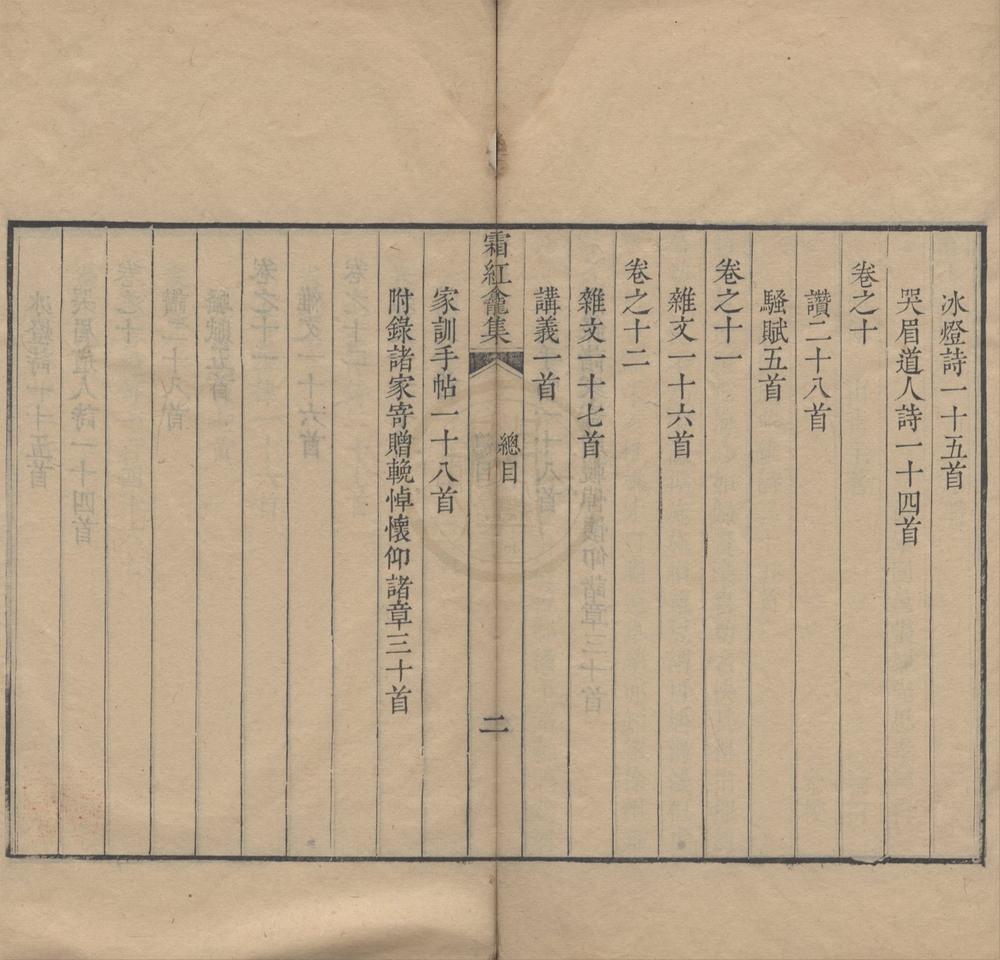 冰燈詩一十五首
哭眉道人詩一十四首
卷之十
讚二十八首
騷賦五首
卷之十一
雜文一十六首
卷之十二
雜文一十七首
講義一首
霜紅龕集
總目
二
家訓手帖一十八首
附錄諸家寄贈輓悼懷仰諸章三十首